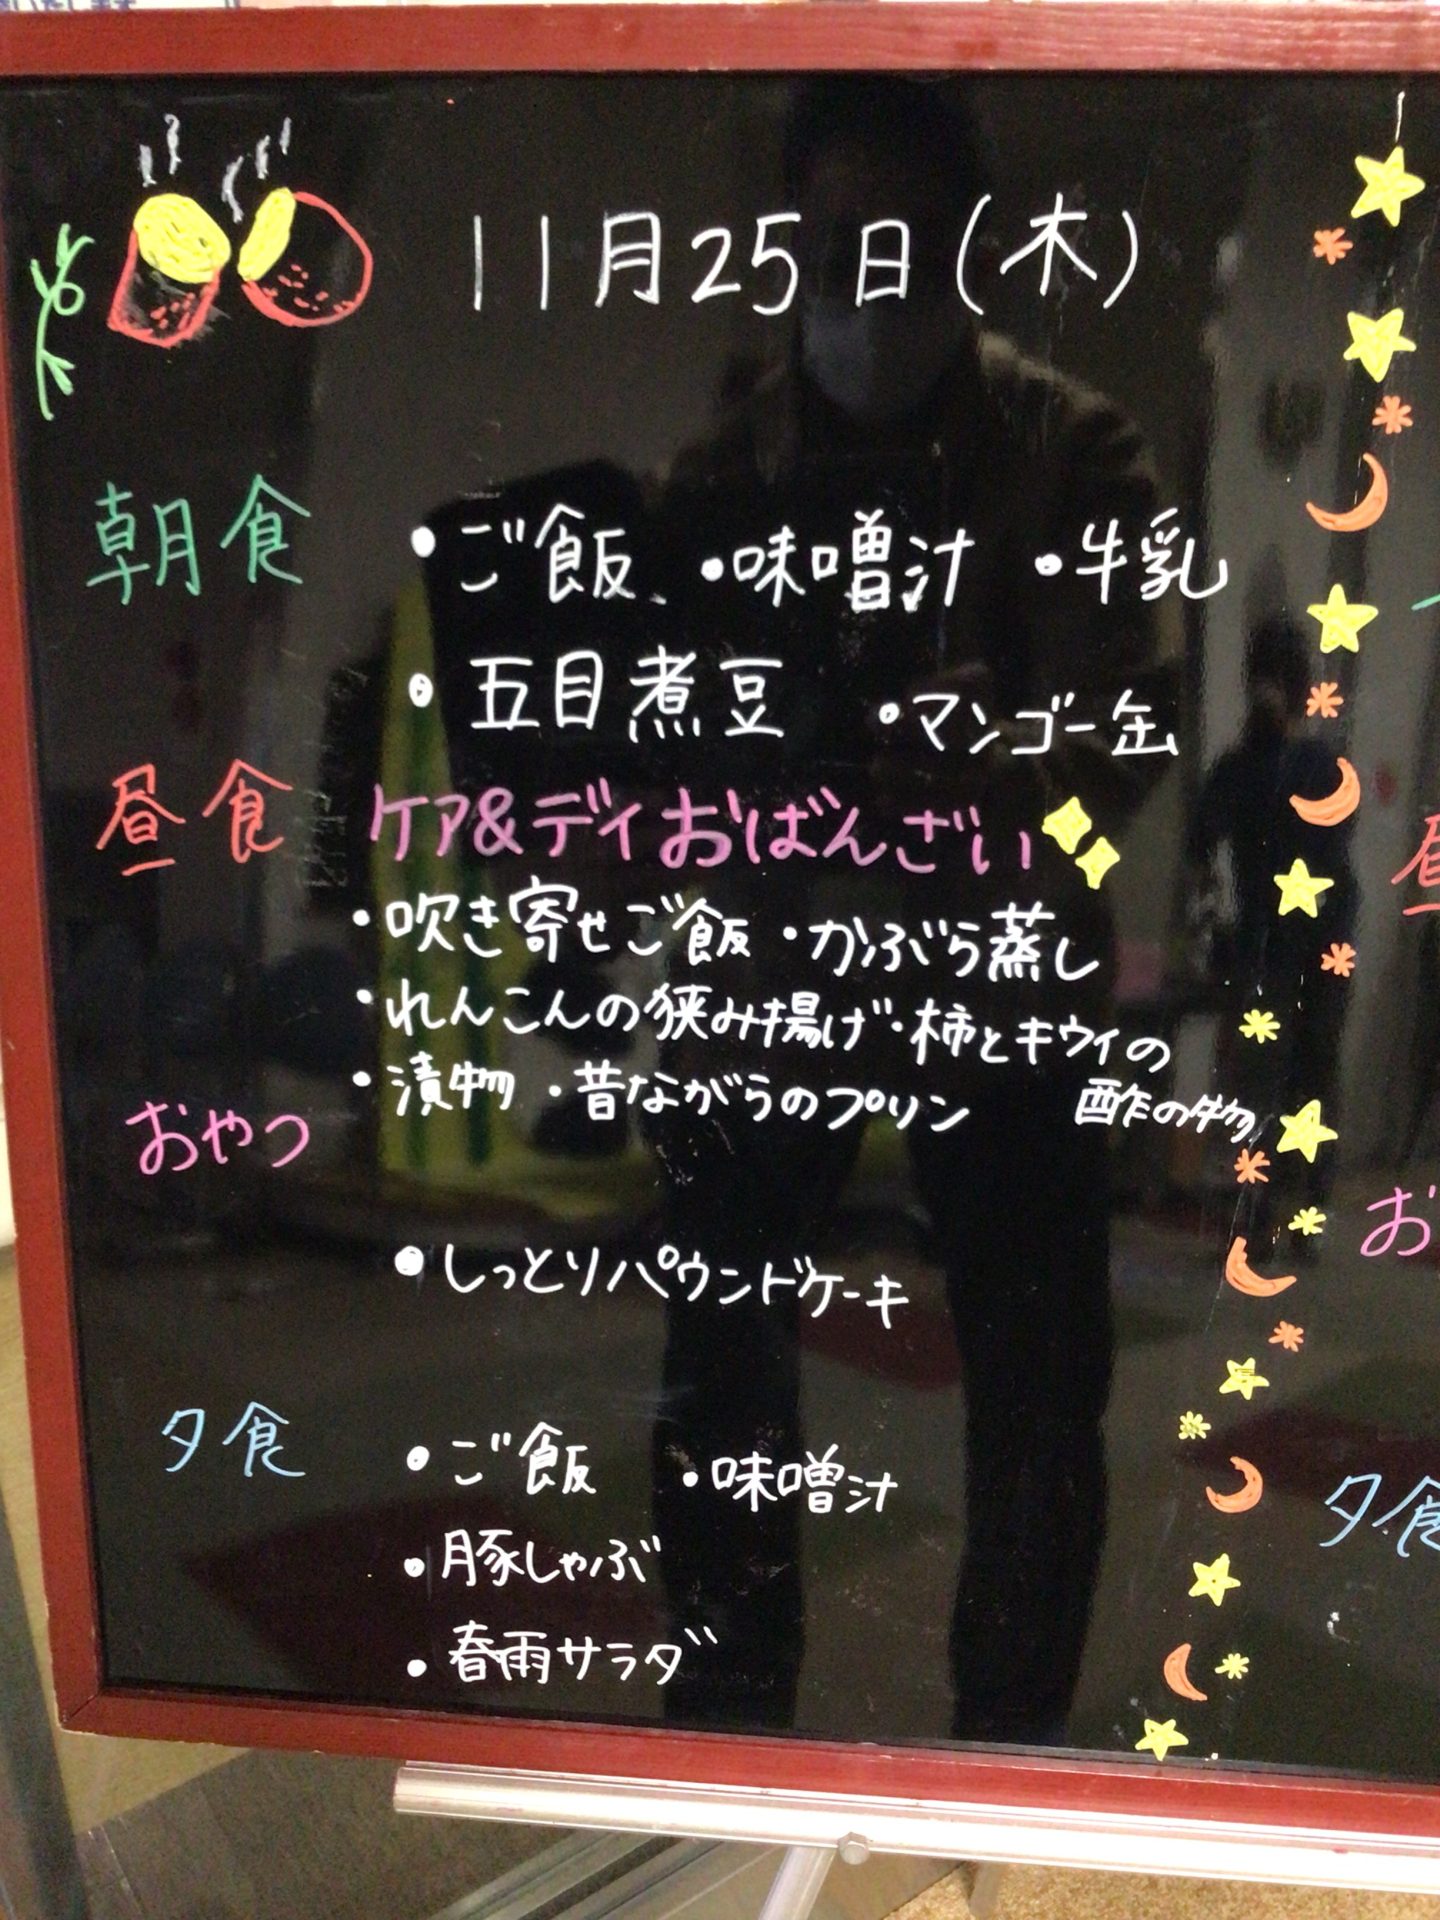 11月25日(木)
朝食 ・ご飯 ・味噌汁 ・牛乳
・五目煮豆 ・マンゴー缶
昼食 ケア&デイおばんざい
・吹き寄せご飯 ・かぶら蒸し
・れんこんの狭み揚げ ・柿とキウイの
酢の物
・漬物 ・昔ながらのプリン
おやつ
・しっとりパウンドケーキ
夕食 ・ご飯 ・味噌汁
・豚しゃぶ
・春雨サラダ
昼
お
夕食